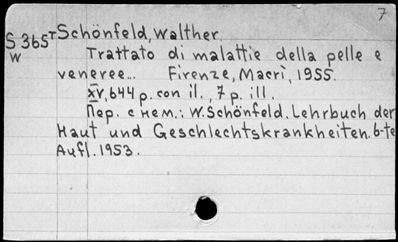 7
S 365т Schönfeld, Walther.
W Trattato di malattie della pelle e
veneree... Firenze, Macrì, 1955.
XV, 644 p. con il., 7 p. ill.
Пер. с нем.: W. Schönfeld. Lehrbuch der
Haut und Geschlechtskrankheiten. 6-te
Aufl. 1953.